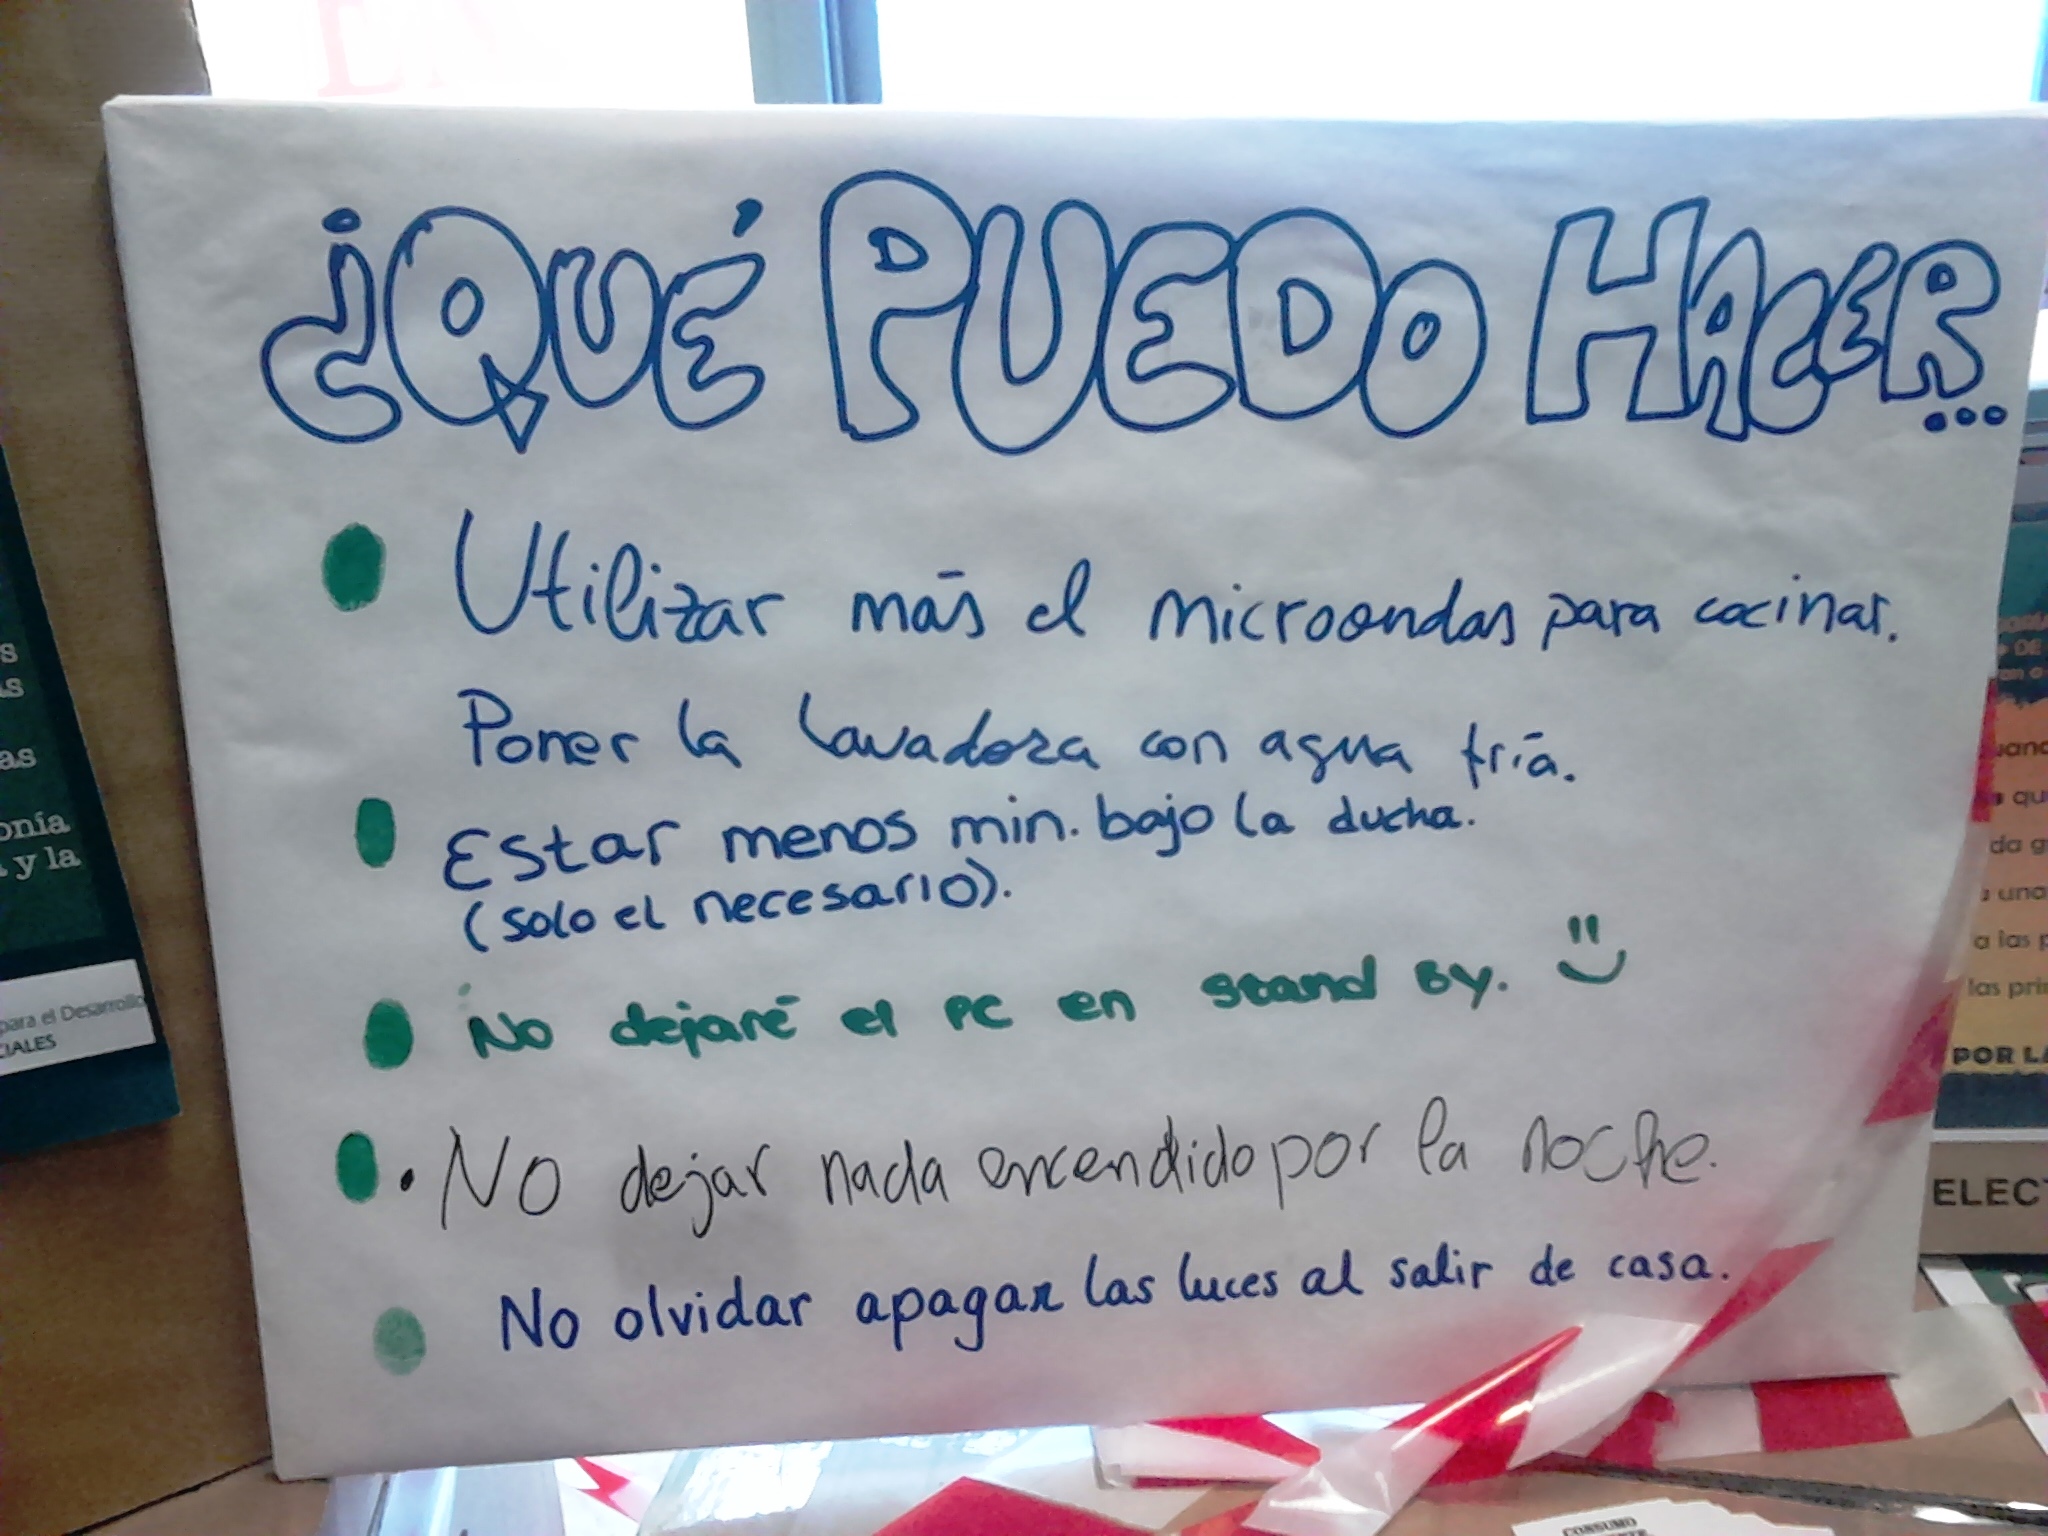 ¿QUÉ PUEDO HACER...
Utilizar más el microondas para cocinar.
Poner la lavadora con agua fría.
Estar menos min. bajo la ducha.
(solo el necesario).
No dejaré el PC en stand by.
· No dejar nada encendido por la noche.
No olvidar apagar las luces al salir de casa.
as
onía
y la
para el Desarrollo
CIALES
DE
qu
da g
una
a las p
las pri
POR LA
ELECT
CONSUMO